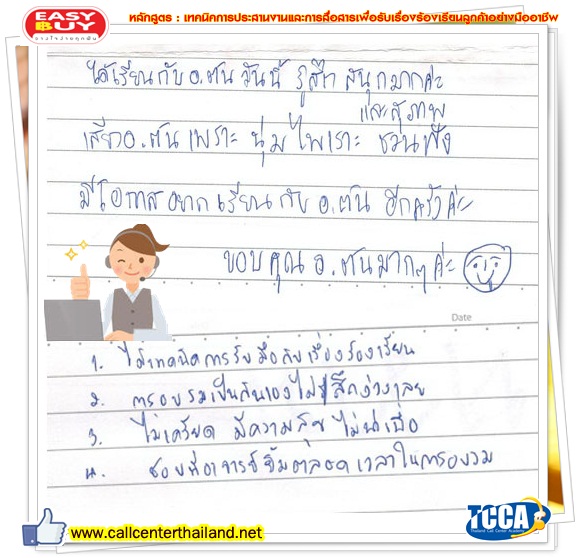 EASY BUY
บางใจง่ายทุกคืน
หลักสูตร : เทคนิคการประสานงานและการสื่อสารเพื่อรับเรื่องร้องเรียนลูกค้าอย่างมืออาชีพ
ได้เรียนกับ อ.ต้น วันนี้ รู้สึก สนุกมากค่ะ
และสุภาพ
เสียง อ.ต้น เพราะ นุ่ม ไพเราะ ชวนฟัง
มีโอกาสอยากเรียนกับ อ.ต้น อีกครั้งค่ะ
ขอบคุณ อ.ต้นมากๆ ค่ะ
Date
1. ได้เทคนิคการรับมือกับเรื่องร้องเรียน
2. การอบรมเป็นกันเองไม่รู้สึกง่วงเลย
3. ไม่เครียด มีความสุข ไม่น่าเบื่อ
4. ชอบที่อาจารย์ยิ้มตลอดเวลาในการอบรม
www.callcenterthailand.net
TCCA
Thailand Call Center Academy